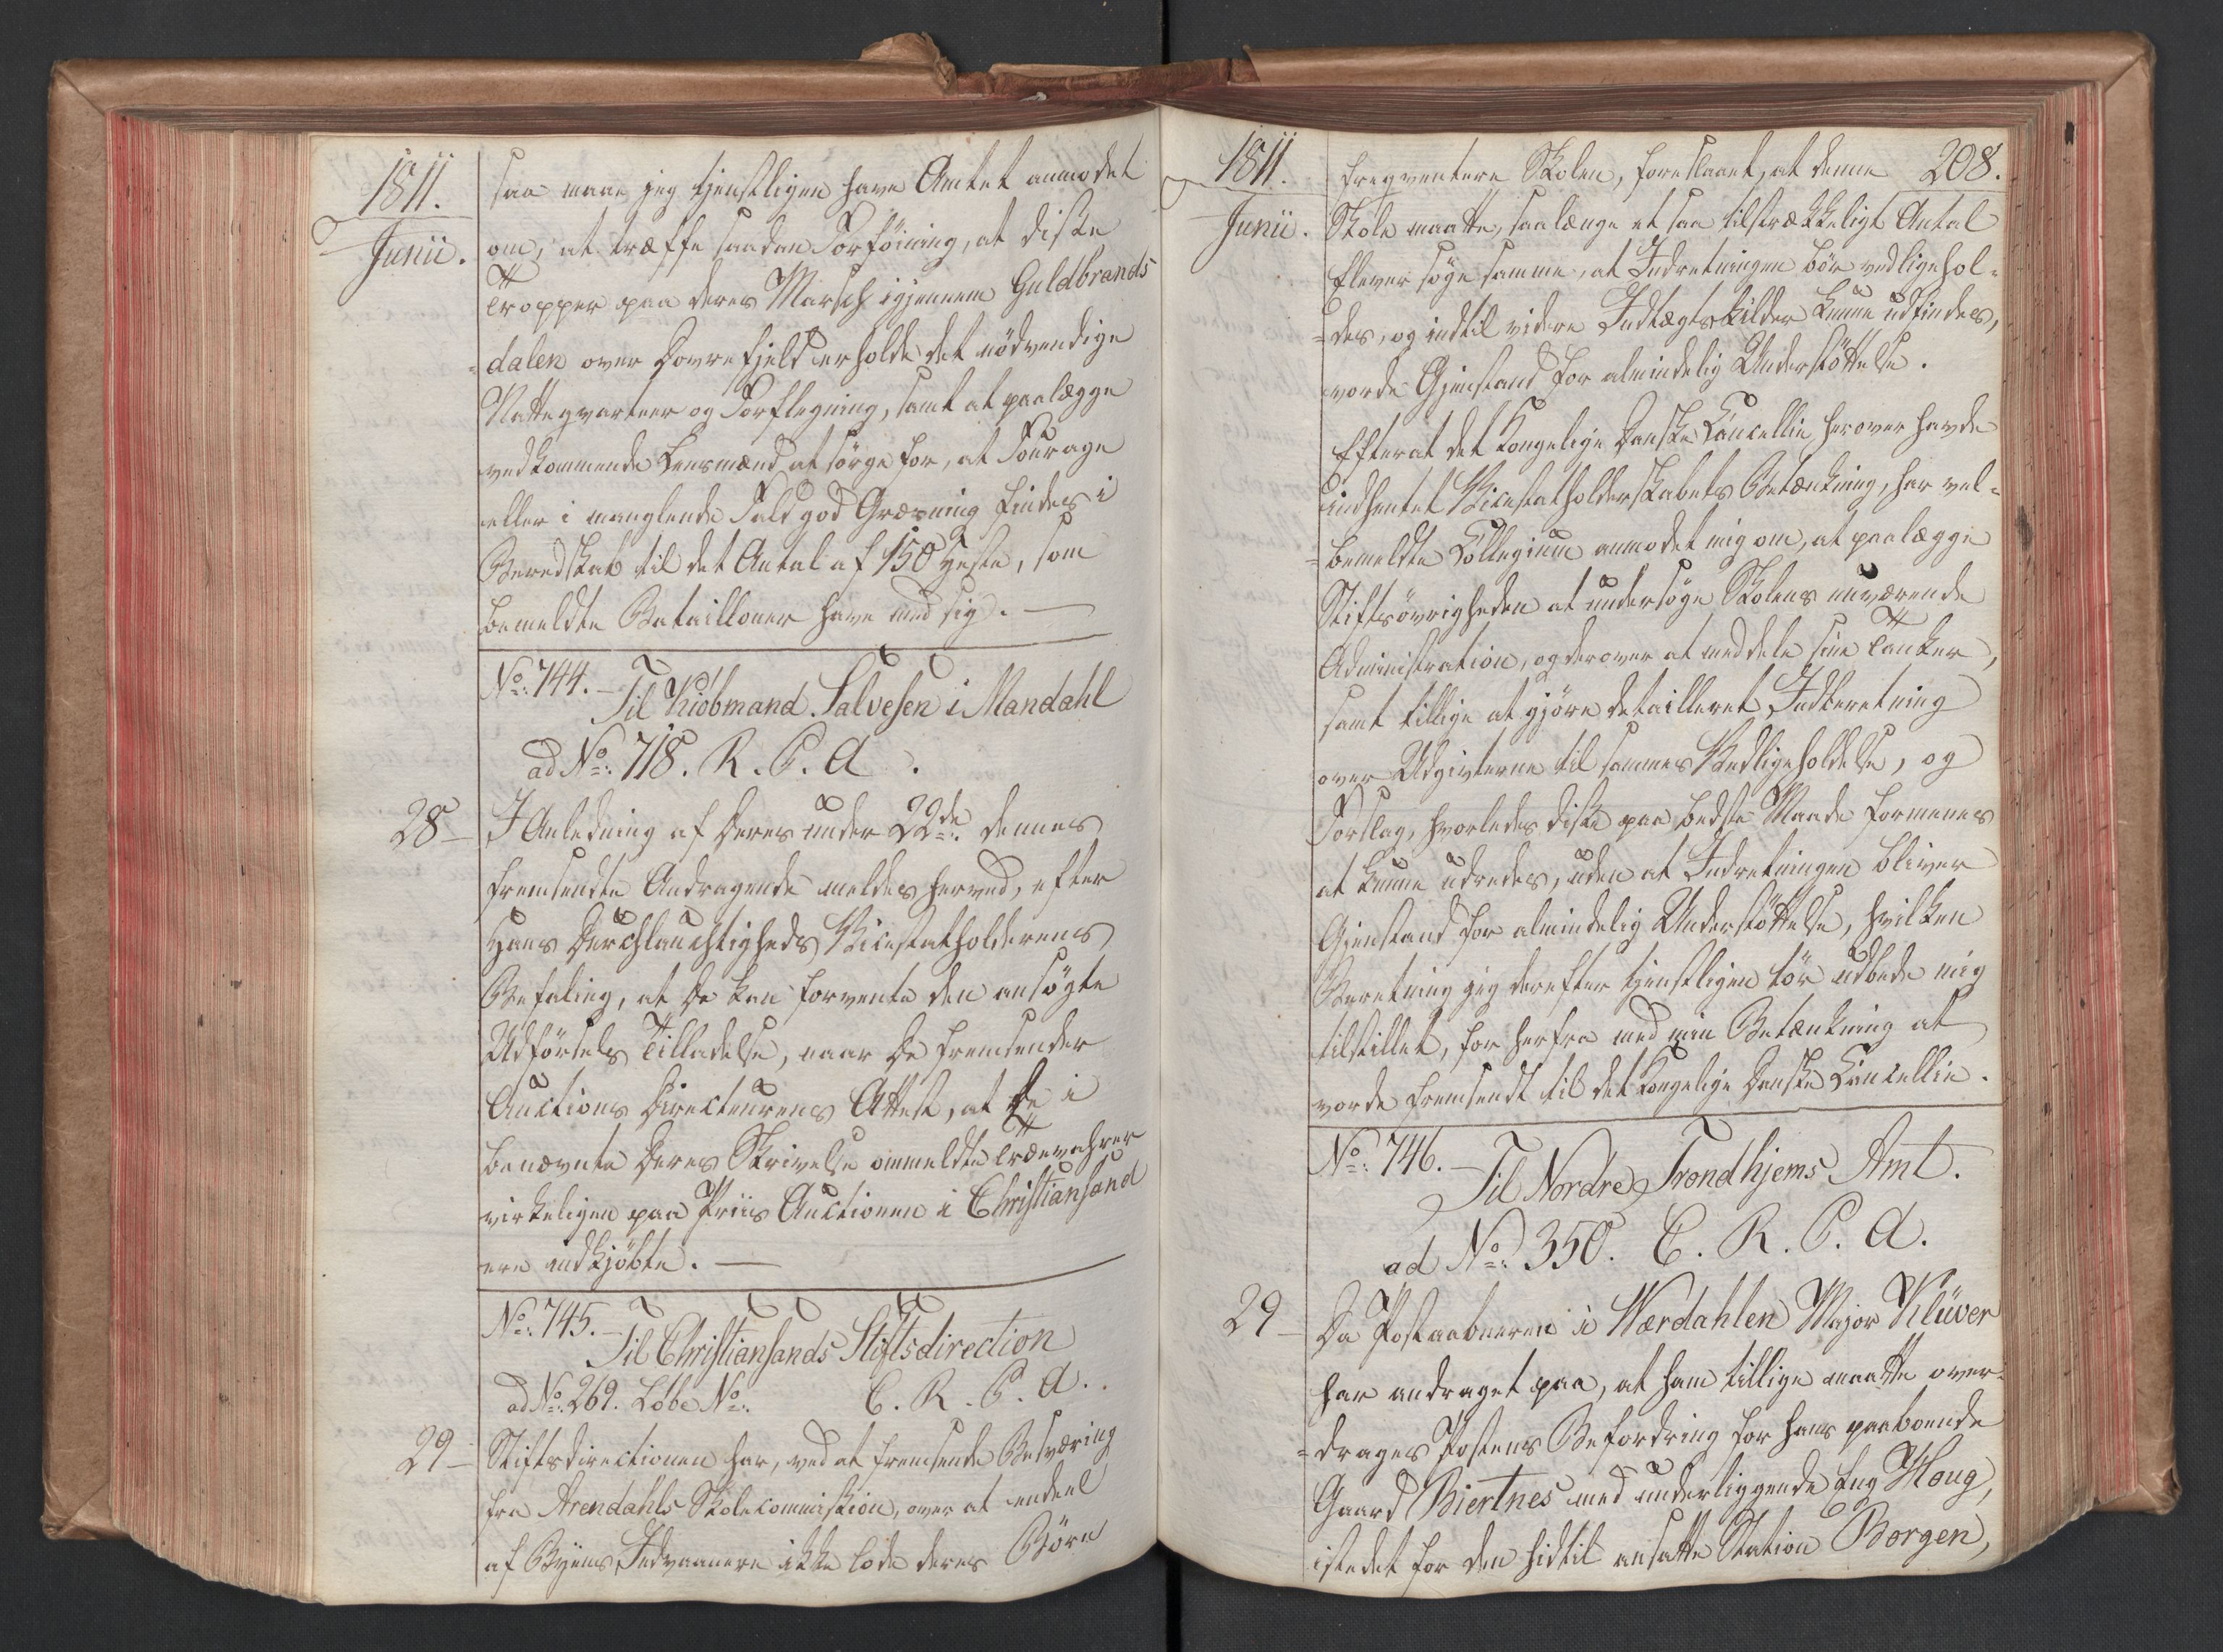 1811.
Junii.
saa maae jeg tjenstligen have Amtet anmodet
om, at træffe saadan Forföining, at disse
Tropper paa deres Marsch igjennem Guldbrands
=dalen over Dovrefjeld erholde det nödvendige
Natteqvarteer og Forflegning, samt at paalægge
vedkommende Lensmænd at sörge for, at Fourage
eller i manglende Fald god Græsning findes i
Beredskab til det Antal af 150 Heste, som
bemeldte Batailloner have med sig. —
No: 744. — Til Kiöbmand Salvesen i Mandahl
ad No: 718. R. C. A.
28 — I Anledning af Deres under 22de dennes
fremsendte Andragende meldes herved, efter
Hans Durchlauchtigheds Vicestatholderens
Befaling, at De kan forvente den ansögte
Udförsels Tilladelse, naar De fremsender
Auctions Directeurens Attest, at de i
benævnte Deres Skrivelse ommeldte Trævahrer
virkeligen paa Priis Auctionen i Christiansand
ere indkjöbte. —
No: 745. — Til Christiansands Stiftsdirection
ad No: 269. Löbe No: C. R. C. A.
29 — Stiftsdirectionen har, ved at fremsende Besværing
fra Arendahls Skolecommission, over at endeel
af Byens Indvaanere ikke lode deres Börn
1811.
Junii.
208.
freqventere Skolen, foreslaaet, at denne
Skole maatte, saalænge et saa tilstrækkeligt Antal
Elever söge samme, at Indretningen bör vedligehol=
=des, og indtil videre Indtægtskilder kunne udfindes,
vorde Gjenstand for almindelig Understöttelse.
Efterat det Kongelige Danske Cancellie herover havde
indhentet Vicestatholderskabets Betænkning, har vel=
=bemeldte Collegium anmodet mig om, at paalægge
Stiftsövrigheden at undersöge Skolens nuværende
Administration, og derover at meddele sine Tanker,
samt tillige at gjöre detailleret Indberetning
over Udgivterne til sammes Vedligeholdelse, og
Forslag, hvorledes disse paa bedste Maade formenes
at kunne udredes, uden at Indretningen bliver
Gjenstand for almindelig Understöttelse, hvilken
Beretning jeg derefter tjenstligen tör udbede mig
tilstillet, for herfra med min Betænkning at
vorde fremsendt til det Kongelige Danske Cancellie.
No: 746. — Til Nordre Trondhjems Amt.
ad No: 350. C. R. C. A.
29 — Da Postaabneren i Værdahlen Major Klüver
har andraget paa, at ham tillige maatte over=
=drages Postens Befordring for hans paaboende
Gaard Biertnes med underliggende Eng Houg,
istedet for den hidtil ansatte Station Borgen,